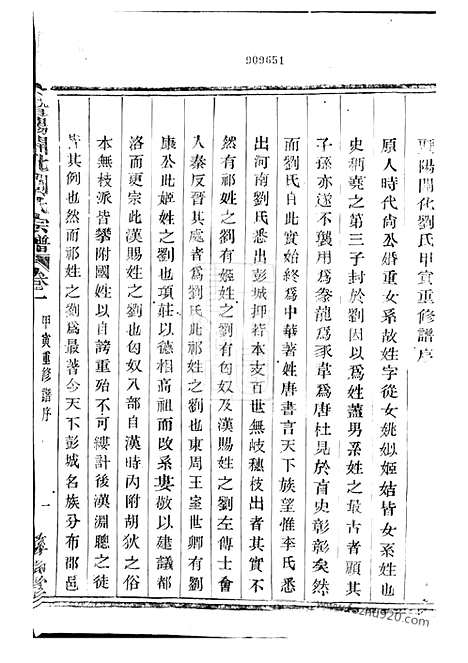 909651
陽開化劉氏甲寅重修譜序
原人時代尚公婚重女系故姓字從女姚姒姬姞皆女系姓也
史稱堯之第三子封於劉因以爲姓蓋男系姓之最古者顧其
子孫亦遂不襲用爲豢龍爲豕韋爲唐杜見於盲史彰彰矣然
而劉氏自此實始終爲中華著姓唐書言天下族望惟李氏悉
出河南劉氏悉出彭城抑若本支百世無歧穗枝出者其實不
然有祁姓之劉有姬姓之劉有匈奴及漢賜姓之劉左傳士會
入秦反晉其處者爲劉氏此祁姓之劉也東周王室世卿有劉
康公此姬姓之劉也項莊以德相高祖而改系婁敬以建議都
洛而更宗此漢賜姓之劉也匈奴入部自漢時內附胡狄之俗
本無枝派皆攀附國姓以自誇重殆不可縷計後漢淵聰之徒
皆其例也然而祁姓之劉爲最著今天下彭城名族分布郡邑
陽開化劉氏宗譜
卷一
甲寅重修譜序
一
zhu920.com